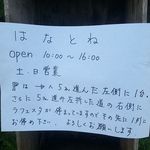 はなとね
open 10:00 〜 16:00
土・日営業
Pは →へ5m進んだ左側に1台.
さらに5m進の左持った道の右側に
ラフェスタが停まっていますがその先に1列に
お停め下さい. よろしくお願いします